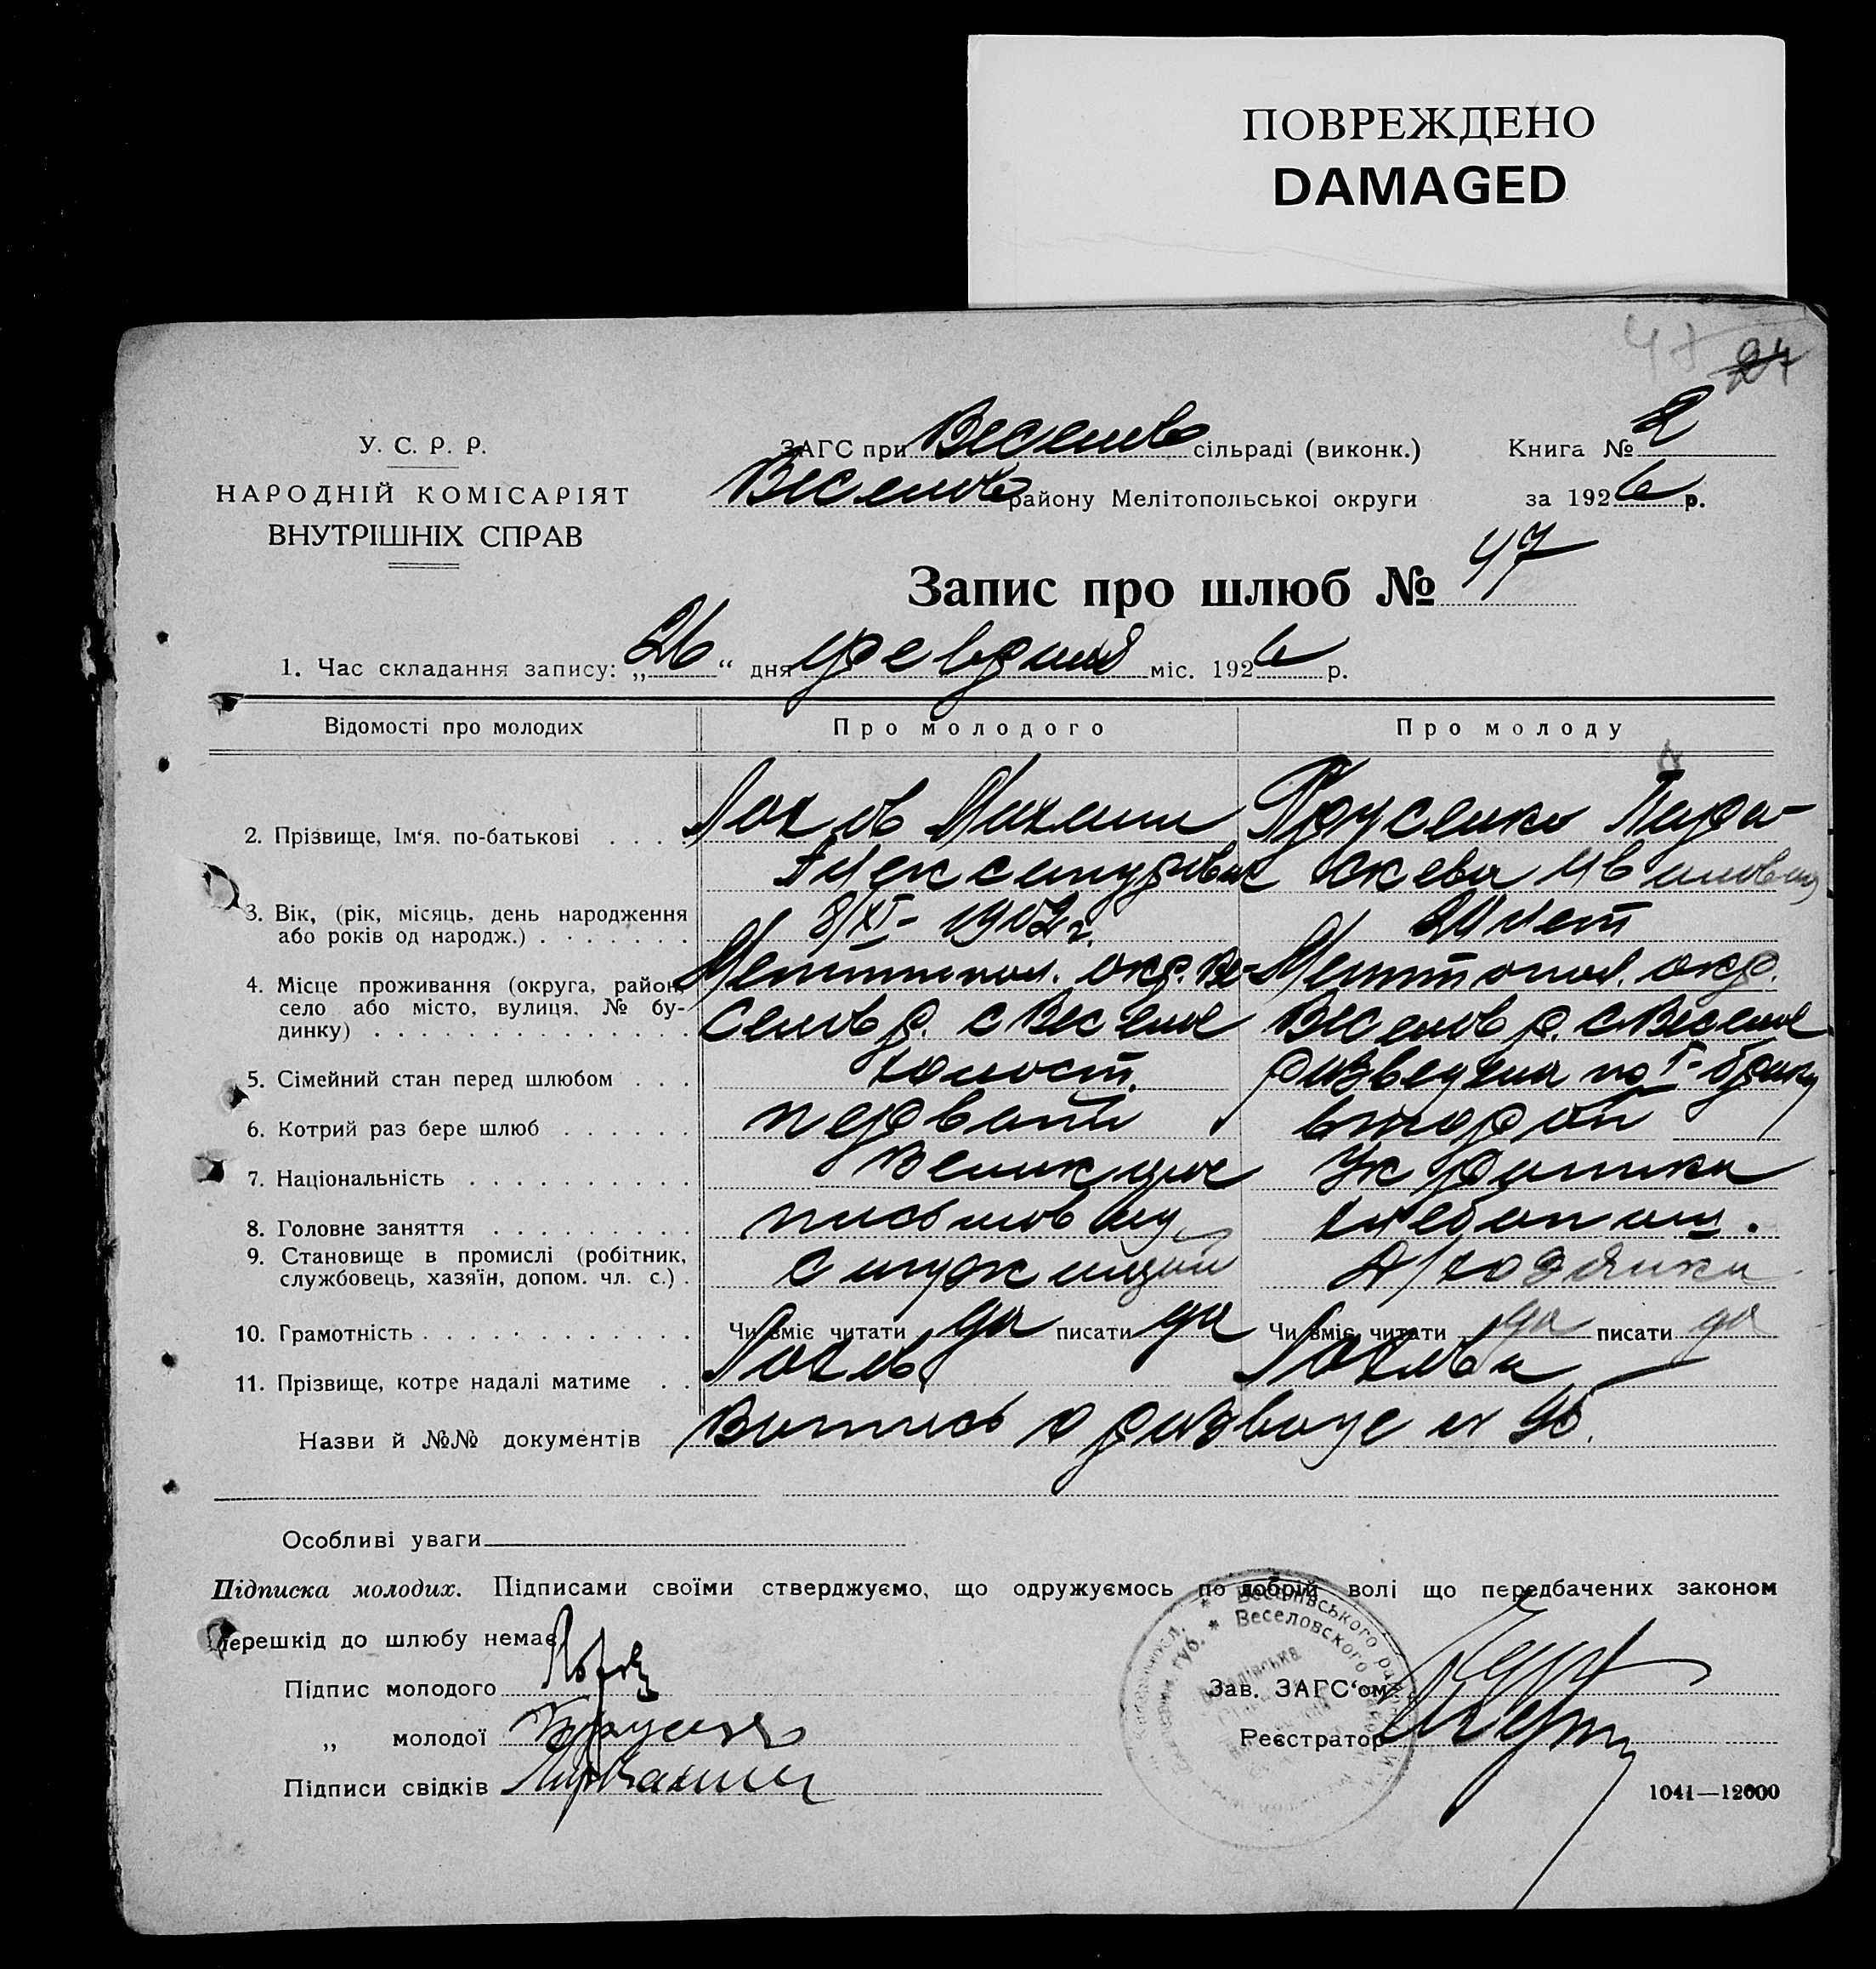 ПОВРЕЖДЕНО
DAMAGED
47 24
У. С. Р. Р.
НАРОДНІЙ КОМІСАРІЯТ
ВНУТРІШНІХ СПРАВ
ЗАГС при Веселов сільраді (виконк.)
Веселов району Мелітопольської округи
Книга № 2
за 1926 р.
Запис про шлюб № 47
1. Час складання запису: „26“ дня февраля міс. 1926 р.
Відомості про молодих Про молодого Про молоду
2. Прізвище, Ім'я, по-батькові . . . . Михаил Прусенко Пара-
Александрович скева Ивановна
3. Вік, (рік, місяць, день народження або років од народж.) . . . . . . . 8/XI- 1902 г. 20 лет
4. Місце проживання (округа, район, село або місто, вулиця, № будинку) . . . . Мелитопол. окр. Ве- Мелитопол. окр.
селов р. с Веселое Веселов р. с Веселое
5. Сімейний стан перед шлюбом . . . холост. разведена по I- браку
6. Котрий раз бере шлюб . . . . . . первый второй
7. Національність . . . . . . . . . . Украинка
8. Головне заняття . . . . . . . . . хлебопаш.
9. Становище в промислі (робітник, службовець, хазяїн, допом. чл. с.) . служащий д/хозяйка
10. Грамотність . . . . . . . . . . . . Чи вміє читати да писати да Чи вміє читати да писати да
11. Прізвище, котре надалі матиме . .
Назви й №№ документів Выпись о разводе
Особливі уваги
Підписка молодих. Підписами своїми стверджуємо, що одружуємось по добрій волі що передбачених законом
перешкід до шлюбу немає
Підпис молодого
„ молодої
Підписи свідків
Зав. ЗАГС'ом
Реєстратор
Веселовского
1041—12000